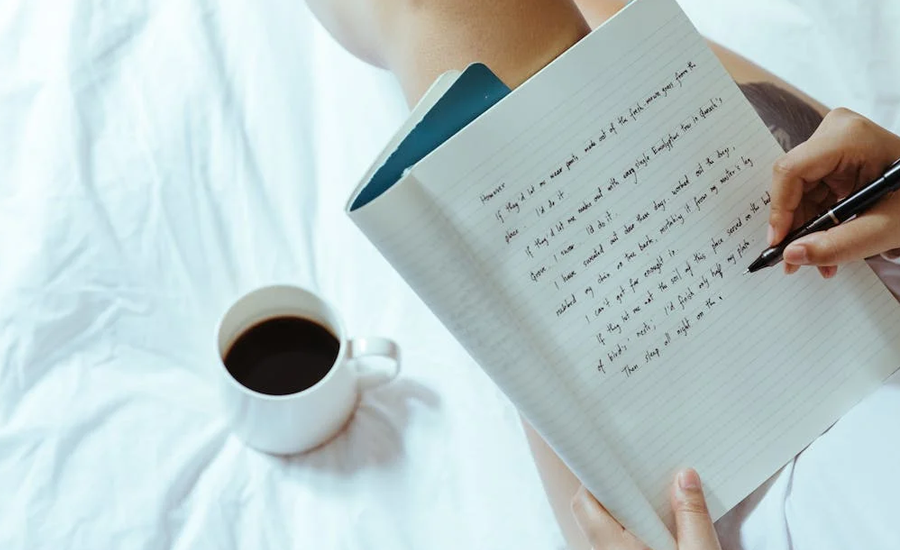 However
If they'd let me wear pants made out of the fresh-woven grass from the
place, I'd do it
If they'd let me make out with every single Eucalyptus tree in
Grove, I swear I'd do it.
I have sweated out dear these days, worked out the days,
rubbed my chin on tree bark, mistaking it from my master's leg
I can't get far enough in.
If they let me eat the soil of this place served on the
of birds' nests, I'd finish only half my plate.
Then sleep all night on the